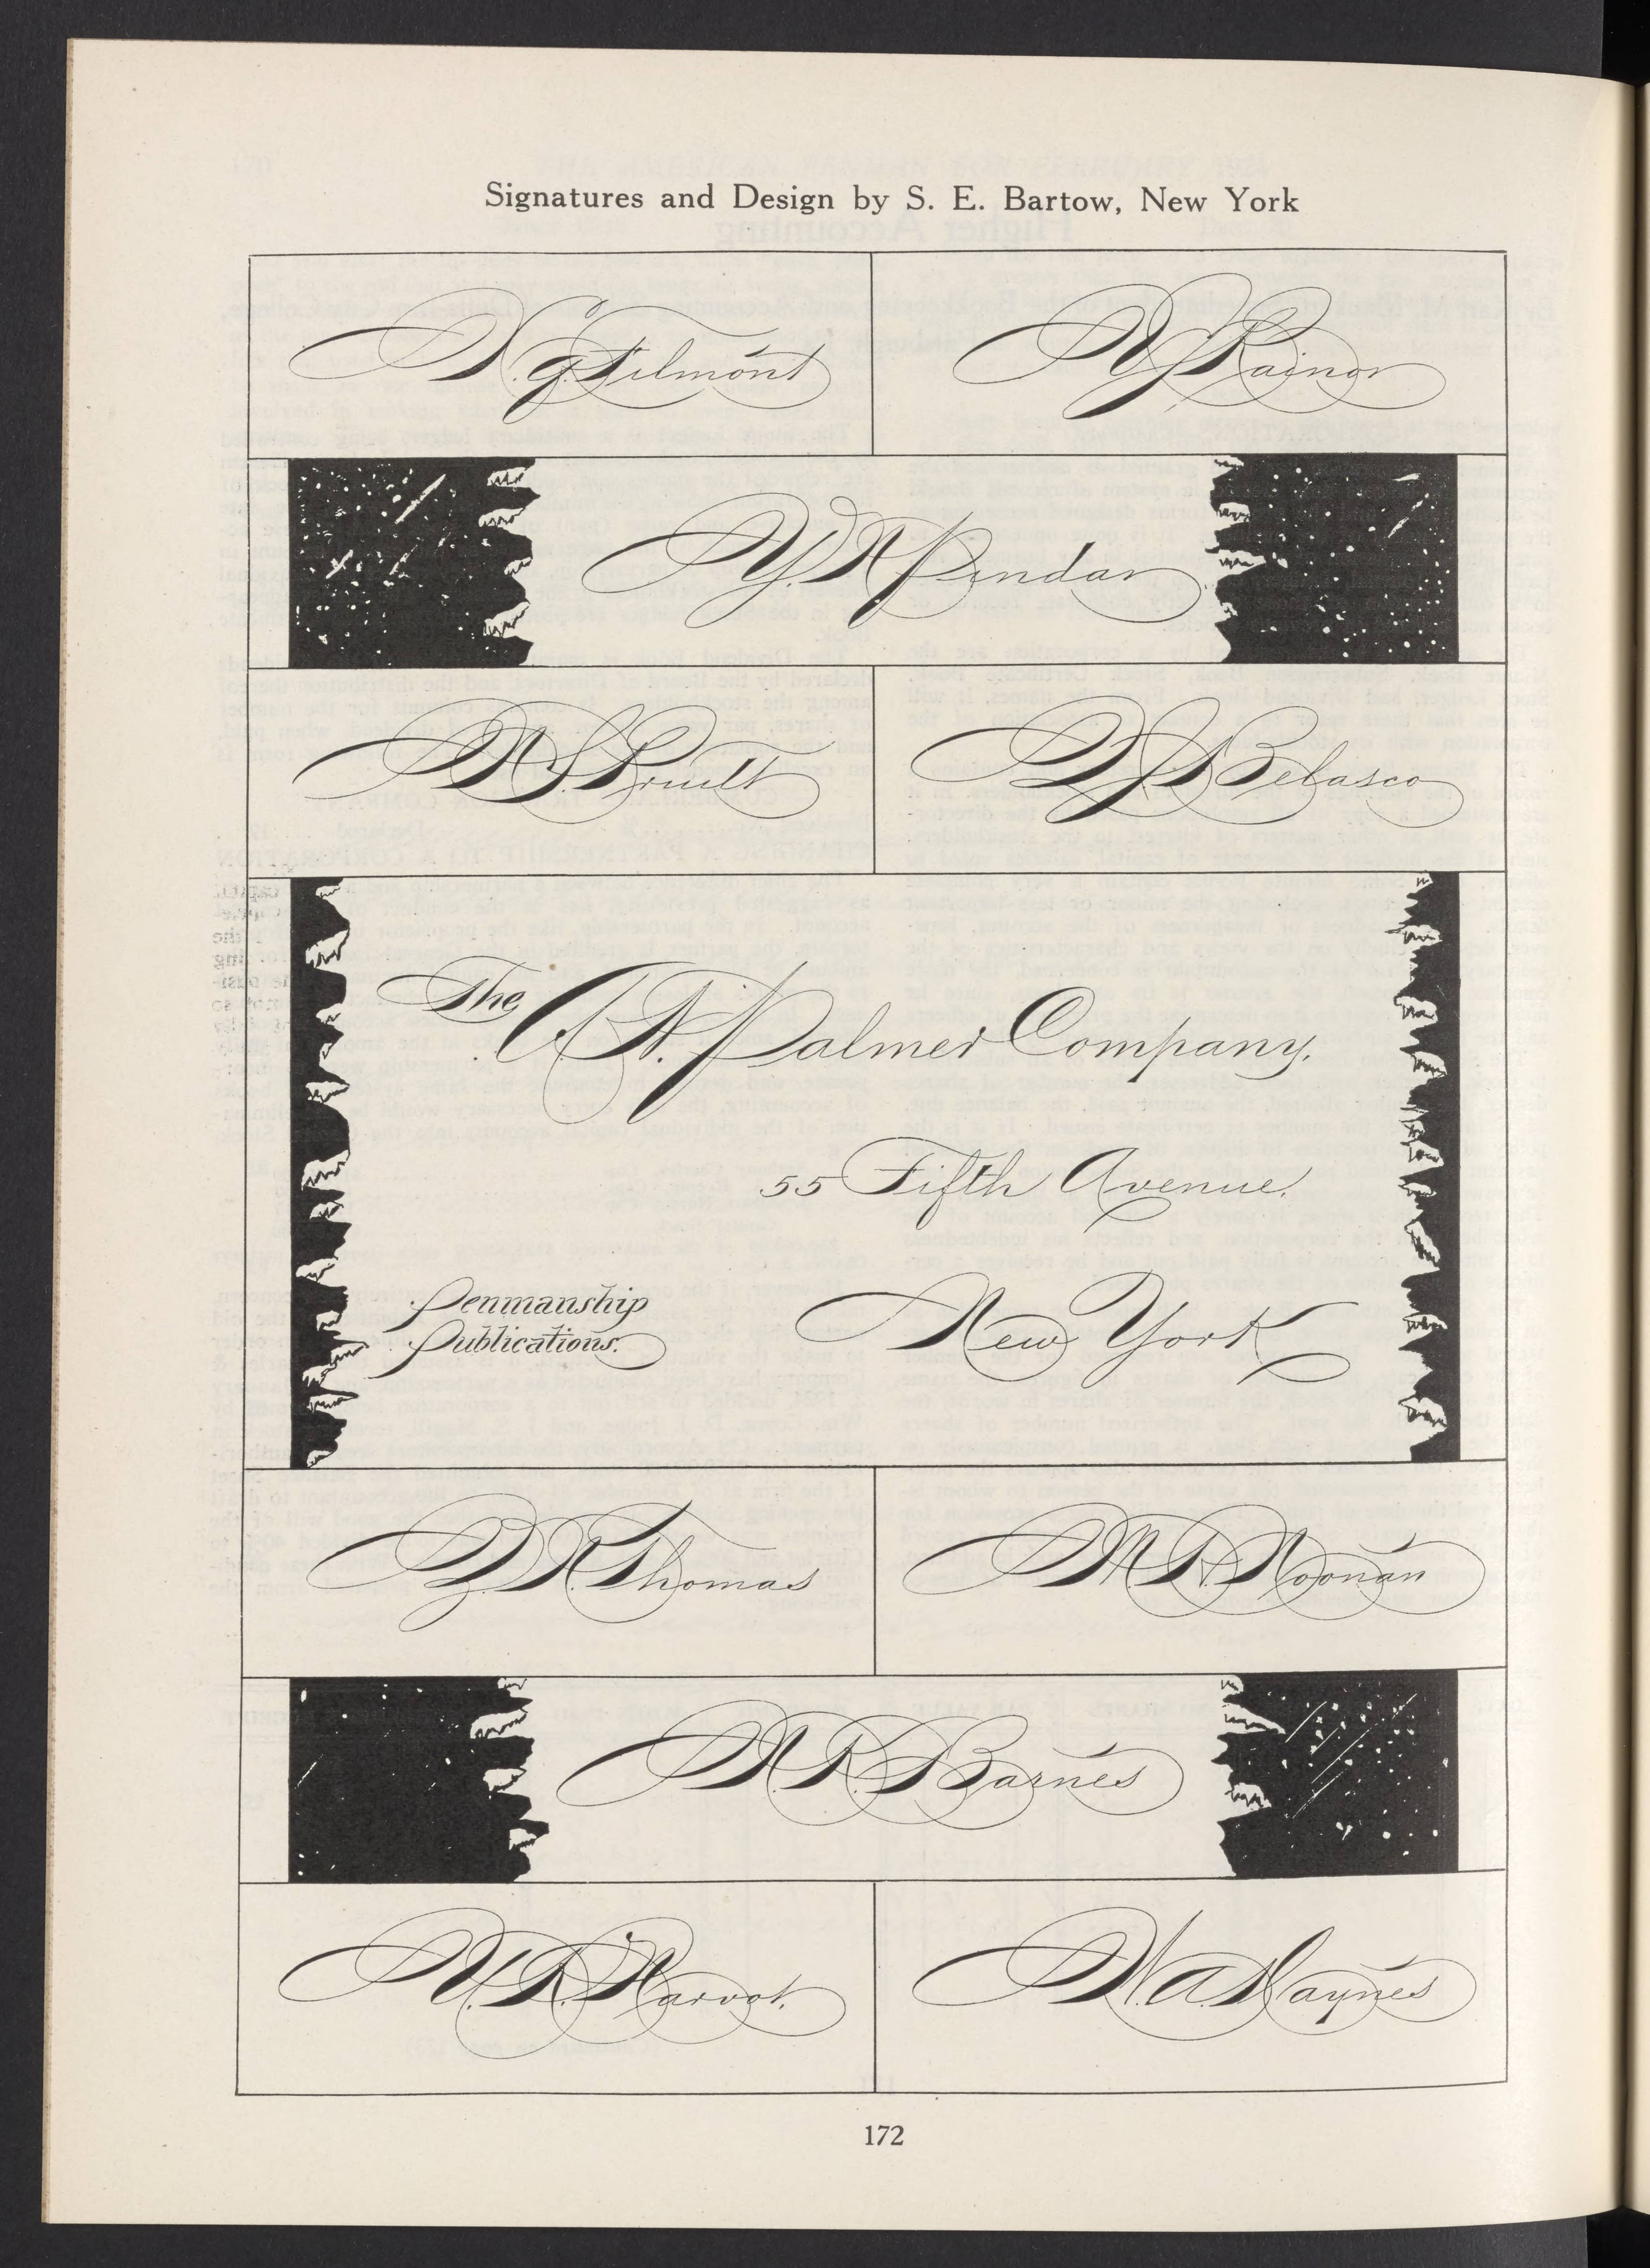 Signatures and Design by S. E. Bartow, New York
Filmont
Rainor
Pindar
Pruitt
Belasco
The A. N. Palmer Company.
55 Fifth Avenue.
Penmanship
Publications.
New York
Thomas
Noonan
Barnes
Harvot.
Haynes
172